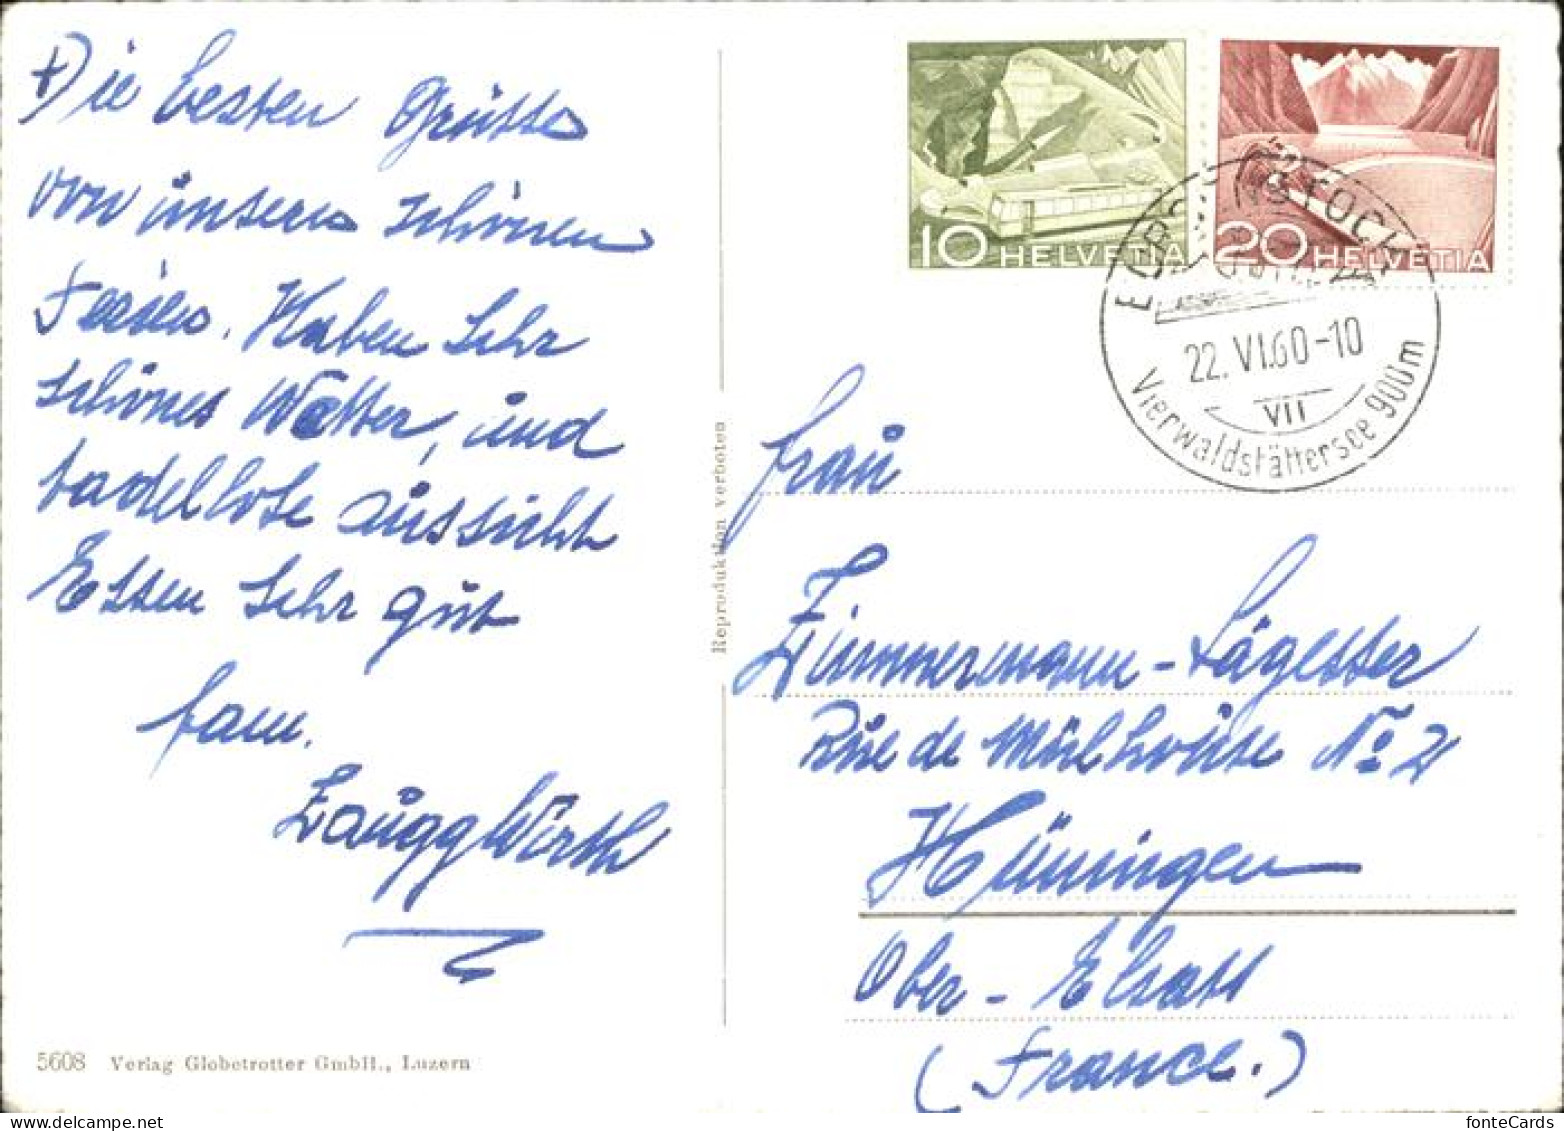 Die besten Grüsse
von unseren schönen
Ferien. Haben sehr
schönes Wetter, und
tadellose aussicht
Essen sehr gut
Fam.
Zaugg Wirth
5608 Verlag Globetrotter GmbH., Luzern
Reproduktion verboten
10 HELVETIA
20 HELVETIA
22. VI. 60-10
VII
Vierwaldstättersee 900m
Frau
Zimmermann - Lägesser
Rue de Mülhouse No 2
Hüningen
Ober - Elsass
(France.)
fonteCards